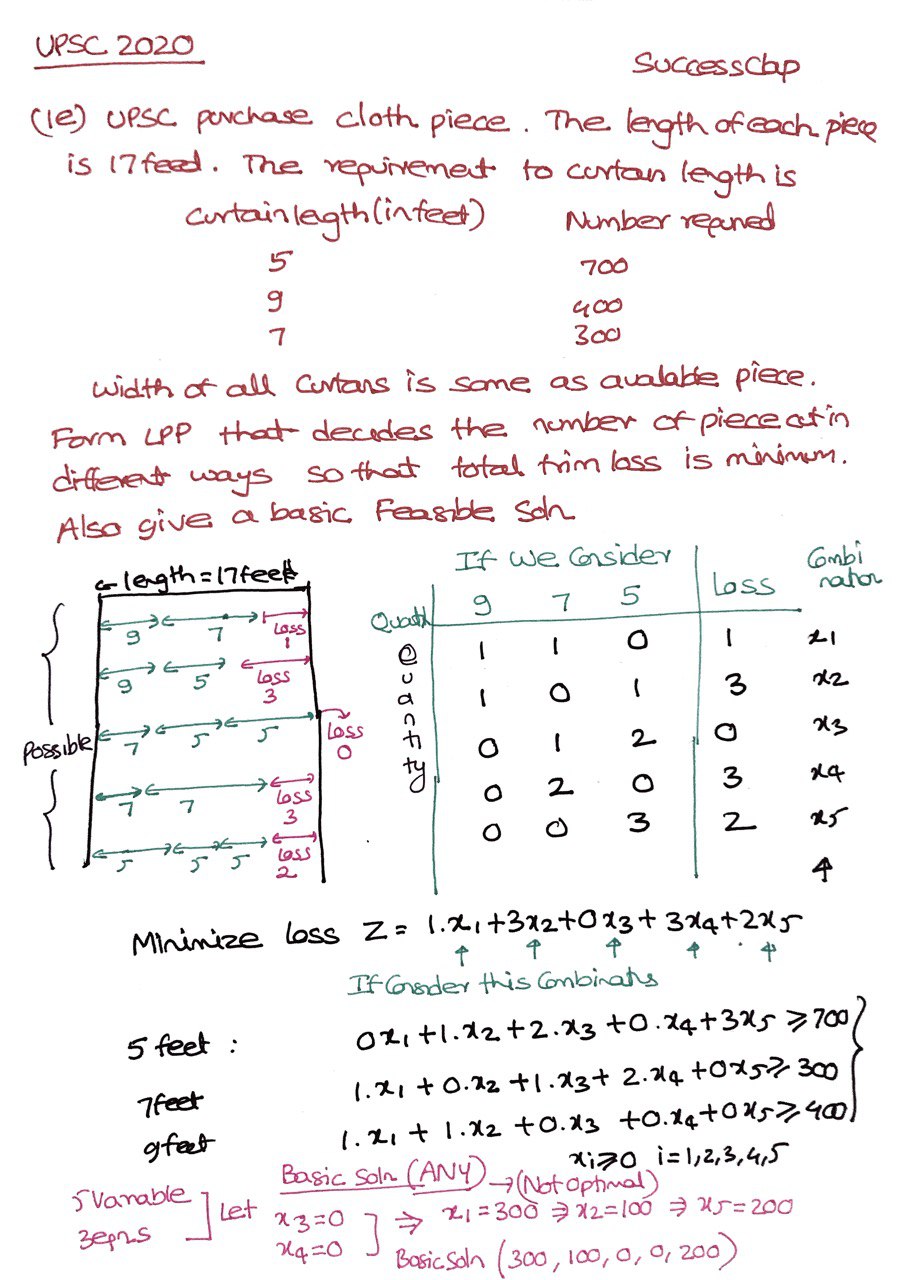 UPSC 2020
SuccessClap
(1e) UPSC purchase cloth piece. The length of each piece
is 17 feed. The requirement to curtain length is
Curtain legth (in feet) Number required
5 700
9 400
7 300
Width of all Curtans is same as avalable piece.
Form LPP that decides the number of piece cut in
different ways so that total trim loss is minimum.
Also give a basic Feasible Soln
length = 17 feet
9 7 Loss 1
9 5 Loss 3
7 5 5 Loss 0
7 7 Loss 3
5 5 5 Loss 2
Possible
If We Consider
9 7 5 Loss Combinator
Quantity
1 1 0 1 x1
1 0 1 3 x2
0 1 2 0 x3
0 2 0 3 x4
0 0 3 2 x5
Minimize loss Z = 1.x1+3x2+0x3+3x4+2x5
If Consider this Combinatns
5 feet : 0x1+1.x2+2.x3+0.x4+3x5 ≥ 700
7feet 1.x1+0.x2+1.x3+2.x4+0x5 ≥ 300
9feet 1.x1+1.x2+0.x3+0.x4+0x5 ≥ 400
xi ≥ 0 i=1,2,3,4,5
Basic Soln (ANY) → (Not Optimal)
5 Variable
3 eqns
Let x3=0
x4=0
⇒ x1=300 ⇒ x2=100 ⇒ x5=200
Basic Soln (300, 100, 0, 0, 200)